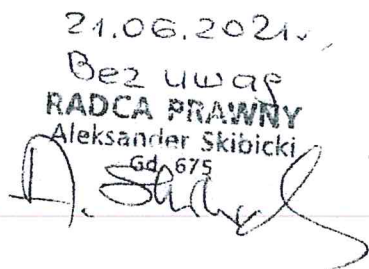 21.06.2021r.
Bez uwag
RADCA PRAWNY
Aleksander Skibicki
Gd 675